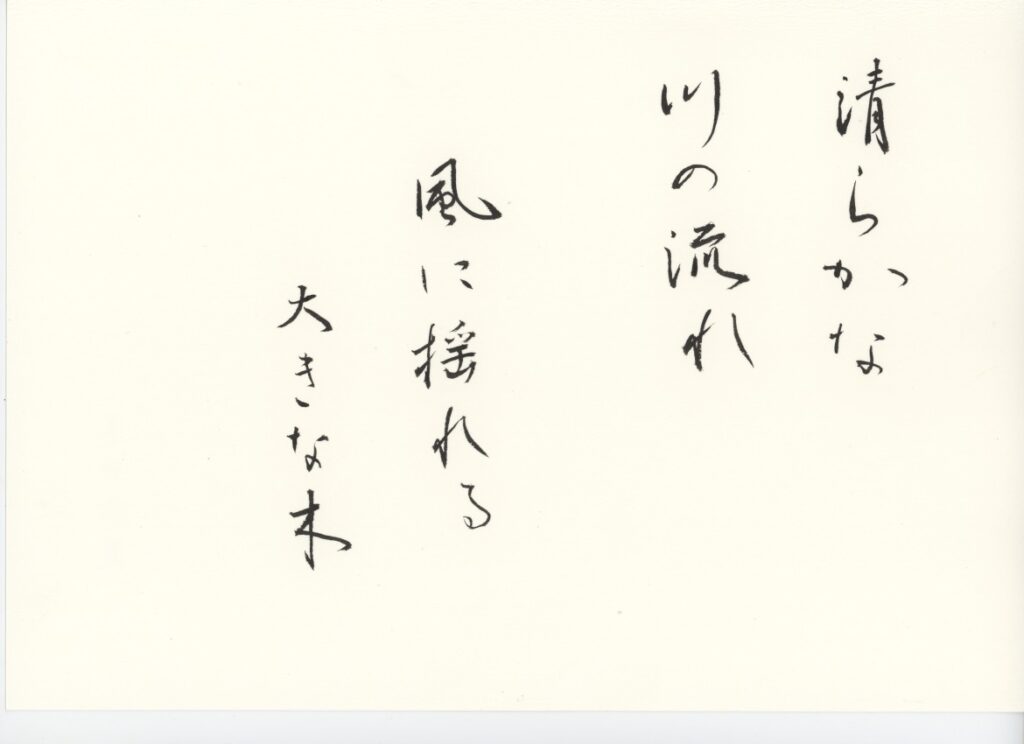 清らかな
川の流れ
風に揺れる
大きな木